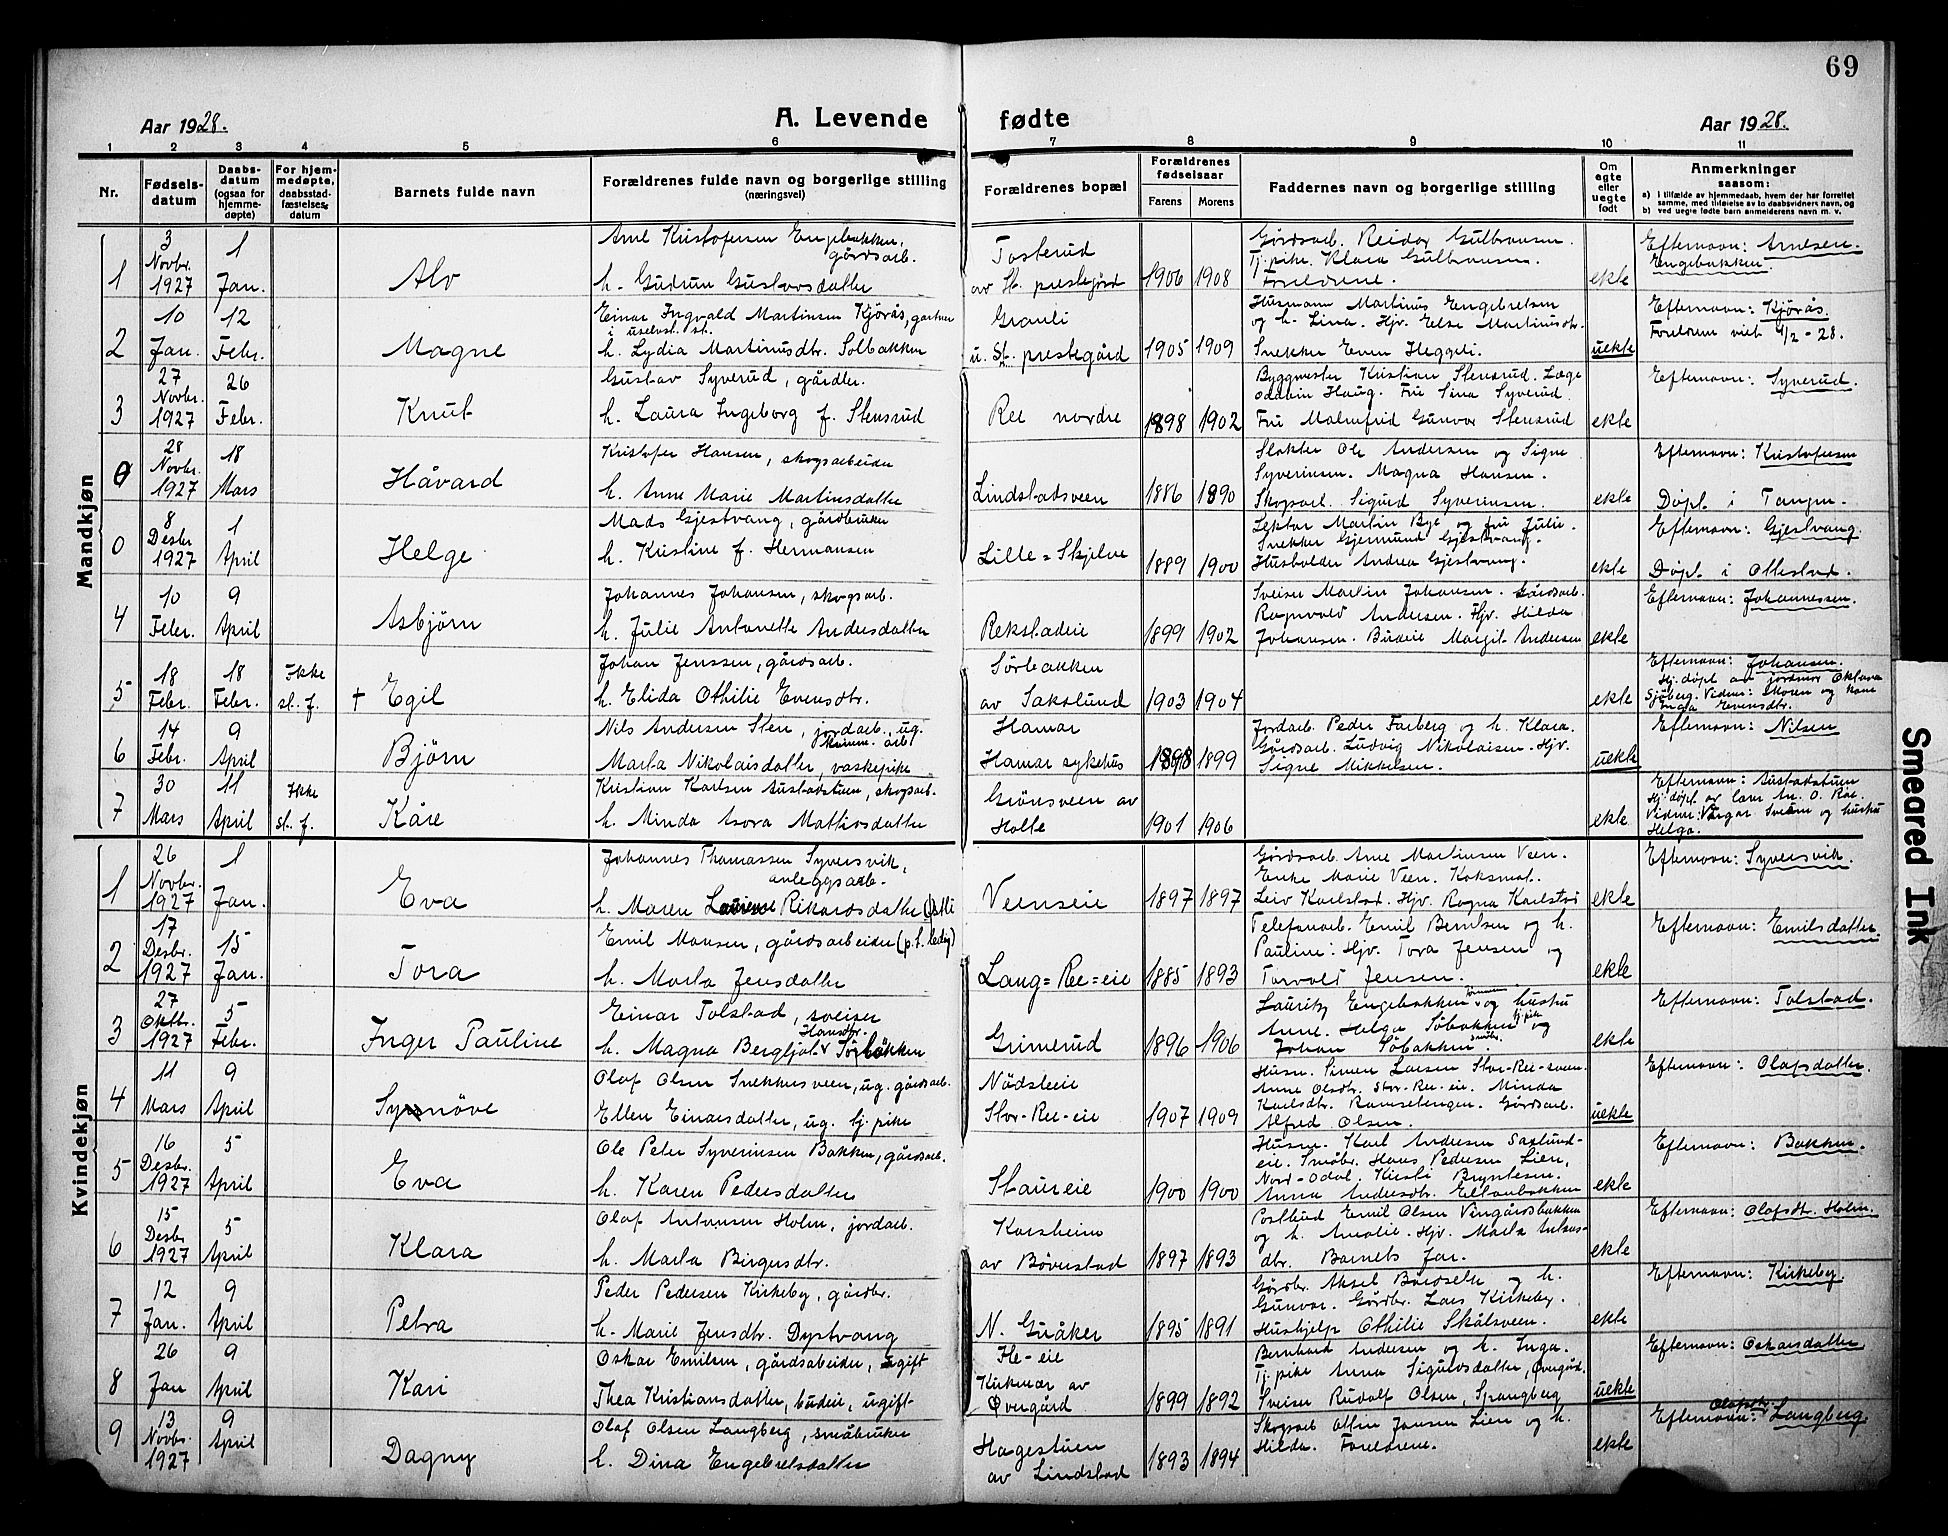 69
Aar 1928.
A. Levende
fødte
Aar 1928.
1 2 3 4 5 6 7 8 9 10 11
Nr.
Fødsels-
datum
Daabs-
datum
(ogsaa for
hjemme-
døpte)
For hjem-
medøpte,
daabsstad-
fæstelses-
datum
Barnets fulde navn
Forældrenes fulde navn og borgerlige stilling
(næringsvei)
Forældrenes bopæl
Forældrenes
fødselsaar
Farens Morens
Faddernes navn og borgerlige stilling
Om
egte
eller
uegte
født
Anmerkninger
saasom:
a) i tilfælde av hjemmedaab, hvem der har forrettet
samme, med tilføielse av to daabsvidners navn, og
b) ved uegte fødte barn anmelderens navn m. v.
Mandkjøn
1
3 Novbr. 1927
1 Jan.
Alv
Arne Kristofersen Engebakken,
gårdsarb.
h. Gudrun Gustavsdatter
Tosterud
av St. prestegård
1906 1908
Gårdsarb. Reidar Gulbransen.
Tj.pike. Klara Gulbransen.
Foreldrene.
ekte
Efternavn: Arnesen
Engebakken.
2
10 Jan.
12 Febr.
Magne
Einar Ingvald Martinsen Kjörås, gartner
i uselvst. st.
h. Lydia Martinusdtr. Solbakken
Granli
u. St. prestegård
1905 1909
Husmann Martinus Engebretsen
og h. Lina. Hjv. Else Martinusdtr.
Snekker Even Heggeli.
uekte
Efternavn: Kjörås.
Foreldrene viet 4/2 - 28.
3
27 Novbr. 1927
26 Febr.
Knut
Gustav Syverud, gårdbr.
h. Laura Ingeborg f. Stensrud
Ree nordre
1898 1902
Byggmester Kristian Stensrud. Læge
Oddbin Haug. Fru Sina Syverud.
Fru Malmfrid Gunvor Stensrud
ekte
Efternavn: Syverud.
0
28 Novbr. 1927
18 Mars
Håvard
Kristofer Hansen, skogsarbeider
h. Anne Marie Martinsdatter
Lindstadsveen
1886 1890
Slakter Ole Andersen og Signe
Syverinsen. Magna Hansen.
Skogsarb. Sigurd Syverinsen.
ekte
Efternavn: Kristofersen
Döpt i Tangen.
0
8 Desbr 1927
1 April
Helge
Mads Gjestvang, gårdbruker
h. Kristine f. Hermansen
Lille=Skjelve
1889 1900
Lektor Martin Bye og fru Julie.
Snekker Gjermund Gjestvang.
Husholder Andrea Gjestvang.
ekte
Efternavn: Gjestvang.
Döpt i Ottestad.
4
10 Febr.
9 April
Asbjörn
Johannes Johansen, skogsarb.
h. Julie Antonette Andersdatter
Rekstadeie
1899 1902
Sveiser Martin Johansen. Gårdsarb.
Ragnvald Andersen. Hjv. Hilda
Johansen. Budeie Margit Andersen
ekte
Efternavn: Johannessen.
5
18 Febr.
18 Febr.
Ikke
st. f.
+ Egil
Johan Jenssen, gårdsarb.
h. Elida Othilie Evensdtr.
Sörbakken
av Sakslund
1903 1904
ekte
Efternavn: Johansen.
Hj.döpt av jordmor Oktavia
Sjöberg. Vidner: Skoren og kone
Inga Evensdtr.
6
14 Febr.
9 April
Björn
Nils Andersen Sten, jordarb. ug.
komm. arb
Marta Nikolaisdatter, vaskepike
Hamar
Hamar sykehus
1898 1899
Jordarb. Peder Farberg og h. Klara.
Gårdsarb. Ludvig Nikolaisen. Hjv.
Signe Mikkelsen.
uekte
Efternavn: Nilsen
7
30 Mars
11 April
Ikke
st. f.
Kåre
Kristian Karlsen Austadstuen, skogsarb.
h. Minda Asora Mathisdatter
Grönsveen av
Holte
1901 1906
ekte
Efternavn: Austadstuen
Hj.döpt av lærer An. O. Røe.
Vidner: Vingar Sveum og hustru
Helga.
Kvindekjøn
1
26 Novbr. 1927
1 Jan.
Eva
Johannes Thomassen Syversvik,
anleggsarb.
h. Maren Laurense Rikardsdatter (Østli
Veenseie
1897 1897
Gårdsarb. Arne Martinsen Veen.
Enke Marie Veen. Koksmat.
Leiv Karlstad. Hjv. Ragna Karlstad
ekte
Efternavn: Syversvik.
2
17 Desbr. 1927
15 Jan.
Tora
Emil Monsen, gårdsarbeider (p.t. ledig)
h. Marta Jensdatter
Lang=Ree=eie
1885 1893
Telefonarb. Emil Berntsen og h.
Pauline. Hjv. Tora Jensen og
Torvald Jensen.
ekte
Efternavn: Emilsdatter
3
27 Oktbr. 1927
5 Febr.
Inger Pauline
Einar Tolstad, sveiser
Hansdtr.
h. Magna Bergljot Sörbakken
Grimerud
1896 1906
Lauritz Engebakken og hustru
Anne. Helga Söbakken tj.pik og
Johan Söbakken
ekte
Efternavn: Tolstad.
4
11 Mars
9 April
Synnöve
Olaf Olsen Snekkersveen, ug. gårdsarb.
Ellen Einarsdatter, ug. tj. pike
Nödsleeie
Stor-Ree-eie
1907 1909
Husm. Simen Larsen Stor-Ree-sveen.
Anne Olsdtr. Stor-Ree-eie. Minda
Karlsdtr. Ramsetengen. Gårdsarb.
Alfred Olsen.
uekte
Efternavn: Olafsdatter.
5
16 Desbr. 1927
5 April
Eva
Ole Peter Syverinsen Bakken, gårdsarb.
h. Karen Pedersdatter
Staureie
1900 1900
Husm. Karl Andersen Saxlund-
eie. Småbr. Hans Pedersen Lien,
Nord-Odal. Kirsti Bryntesen.
Anna Andersdtr. Ellenbakken
ekte
Efternavn: Bakken.
6
15 Desbr 1927
5 April
Klara
Olaf Antonsen Holm, jordarb.
h. Marta Birgersdtr.
Korsheim
av Böverstad
1897 1893
Postbud Emil Olsen Vingårdsbakken
og h. Amalie. Hjv. Marta Antons-
dtr. Barnets far.
ekte
Efternavn: Olafsdtr. Holm.
7
12 Jan.
9 April
Petra
Peder Pedersen Kirkeby, gårdbr.
h. Marie Jensdtr. Dystvang
N. Guåker
1895 1891
Gårdbr. Aksel Bårdseth og h.
Gunvor. Gårdbr. Lars Kirkeby.
Hushjelp Othilie Skålsveen.
ekte
Efternavn: Kirkeby.
8
26 Jan
9 April
Kari
Oskar Emilsen, gårdsarbeider, ugift
Thea Kristiansdatter, budeie, ugift
He-eie
Kirkenær av
Øvergård
1899 1892
Bernhard Andersen og h. Inga.
Tj.pike Anna Sigurdsdatter, Øvergård.
Sveiser Rudolf Olsen, Spangberg
uekte
Efternavn: Oskarsdatter
9
13 Novbr. 1927
9 April
Dagny
Olaf Olsen Langberg, småbruker
h. Dina Engebretsdatter
Hagestuen
av Lindstad
1893 1894
Skogsarb Otto Jansen Lien og h.
Hilda. Foreldrene.
ekte
Olafsdtr.
Efternavn: Langberg.
Smeared Ink